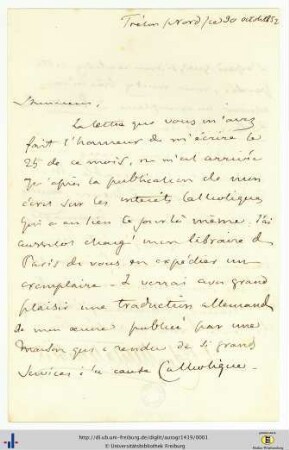 Trélon (Nord) ce 30 oct. 1852
Monsieur,
La lettre que vous m'avez
fait l'honneur de m'écrire le
25 de ce mois, ne m'est arrivée
qu'après la publication de mon
écrit sur les intérêts Catholiques
qui a eu lieu le jour là même. J'ai
aussitôt chargé mon libraire de
Paris de vous en expédier un
exemplaire. Je verrai avec grand
plaisir une traduction allemande
de mon œuvre publiée par une
maison qui a rendu de si grands
services à la cause Catholique.
http://dl.ub.uni-freiburg.de/diglit/autogr1419/0001
© Universitätsbibliothek Freiburg